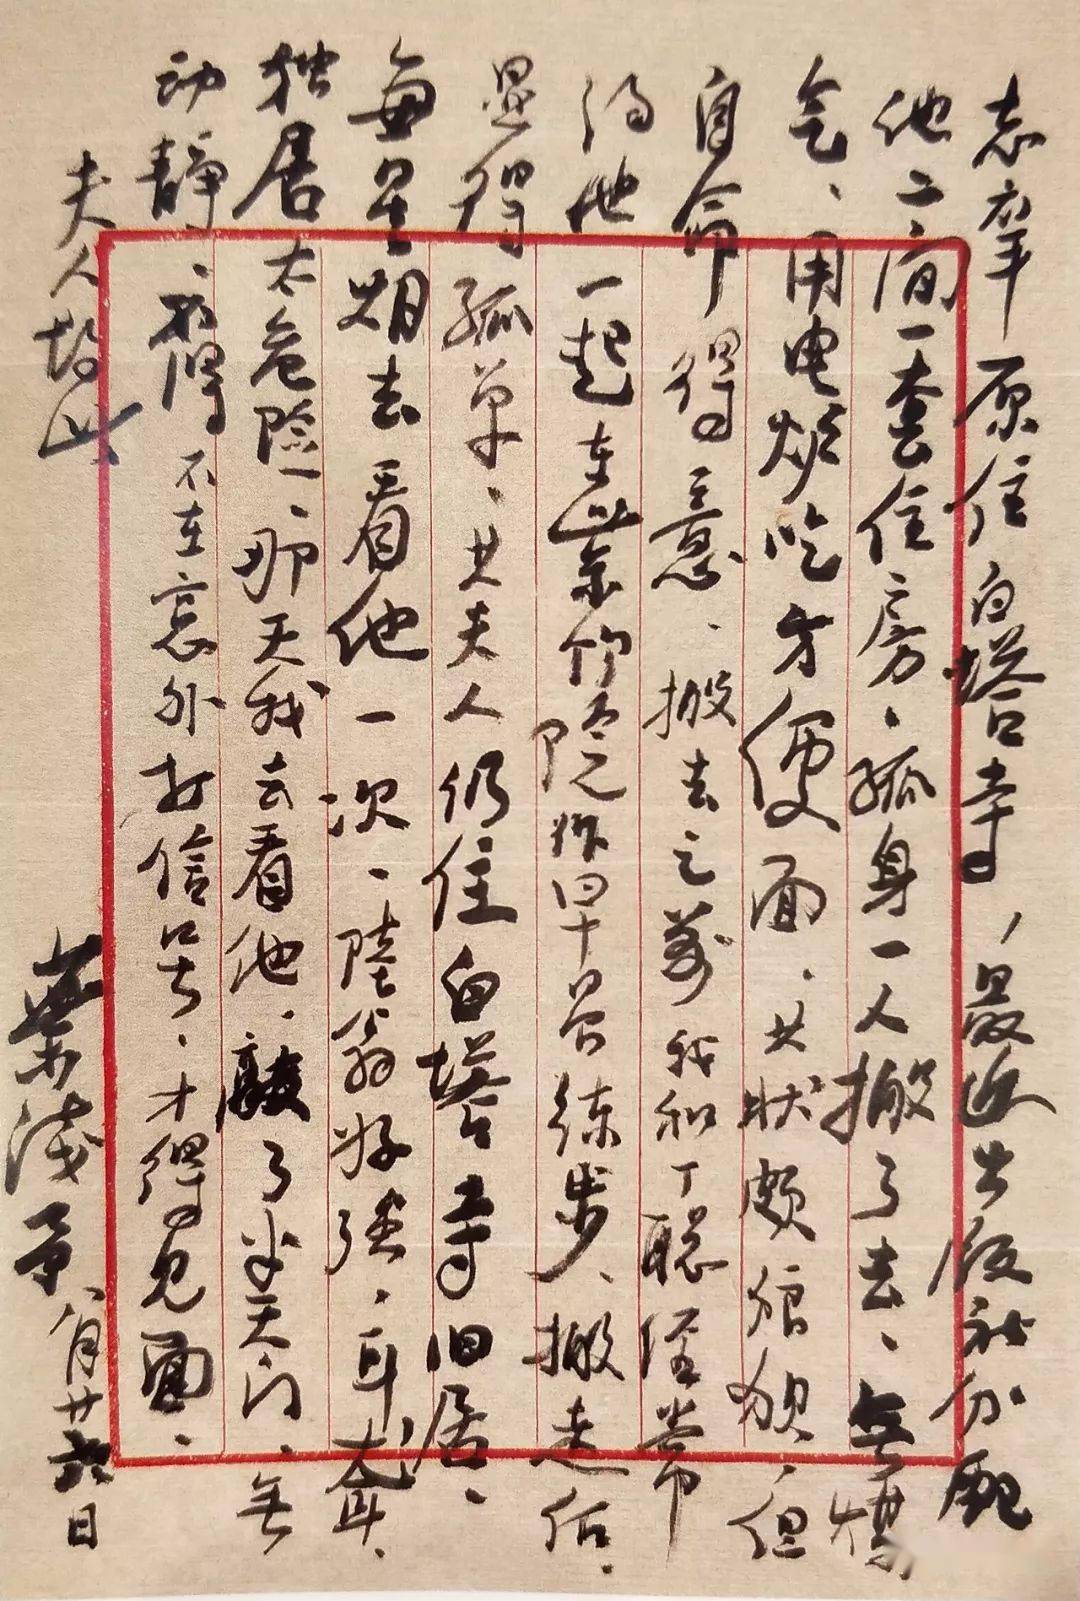 志庠原住白塔寺，最近出版社分配
他二间一套住房、孤身一人搬了去、无煤
气、用电炉吃方便面、其状颇狼狈、但
自命得意、搬去之前我和丁聪经常
约他一起在紫竹院作早晨练步、搬走后、
显得孤单、其夫人仍住白塔寺旧居、
每星期去看他一次、陆翁好强、耳聋、
独居太危险、那天我去看他、敲了半天门、无
动静、得不在窗外打信号、才得见面、
夫人均此
葉浅予 八月廿六日